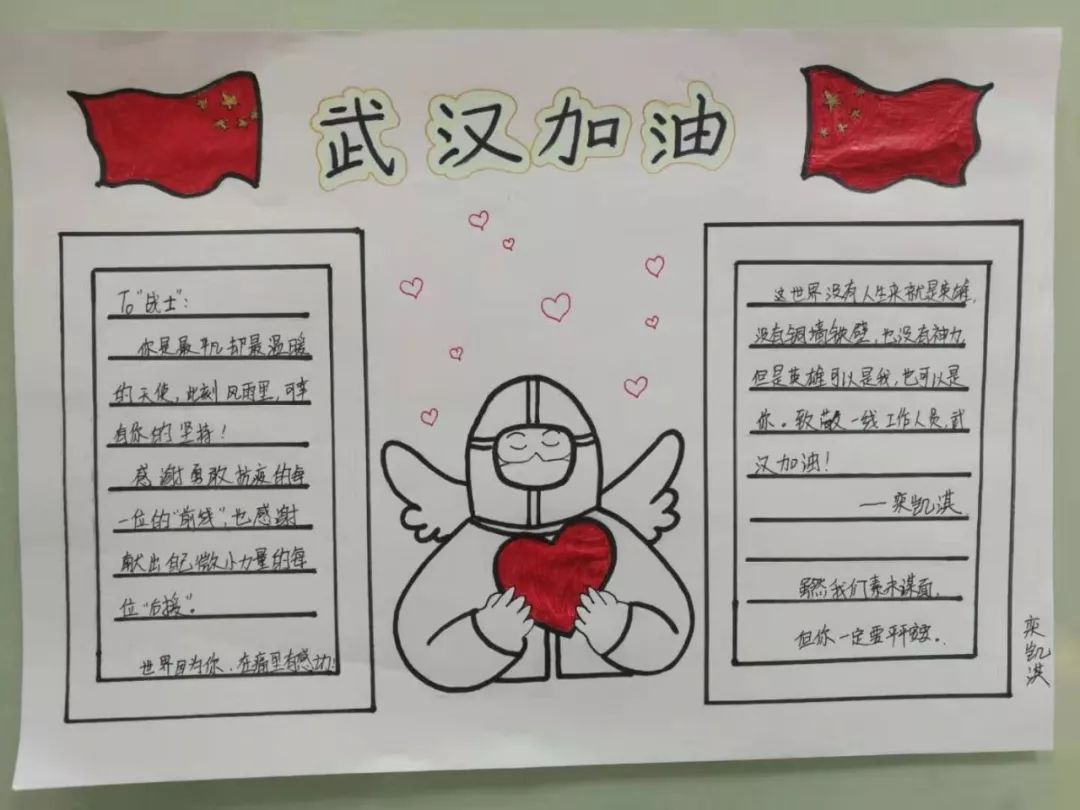 武汉加油
To“战士”:
你是最平凡却最温暖
的天使,此刻风雨里,可幸
有你的坚持!
感谢勇敢抗疫的每
一位的“前线”,也感谢
献出自己微小力量的每
位“后援”。
世界因为你、在痛里有感动
这世界没有人生来就是英雄,
没有铜墙铁壁,也没有神力,
但是英雄可以是我,也可以是
你。致敬一线工作人员,武
汉加油!
——栾凯淇
虽然我们素未谋面,
但你一定要平安。
栾凯淇